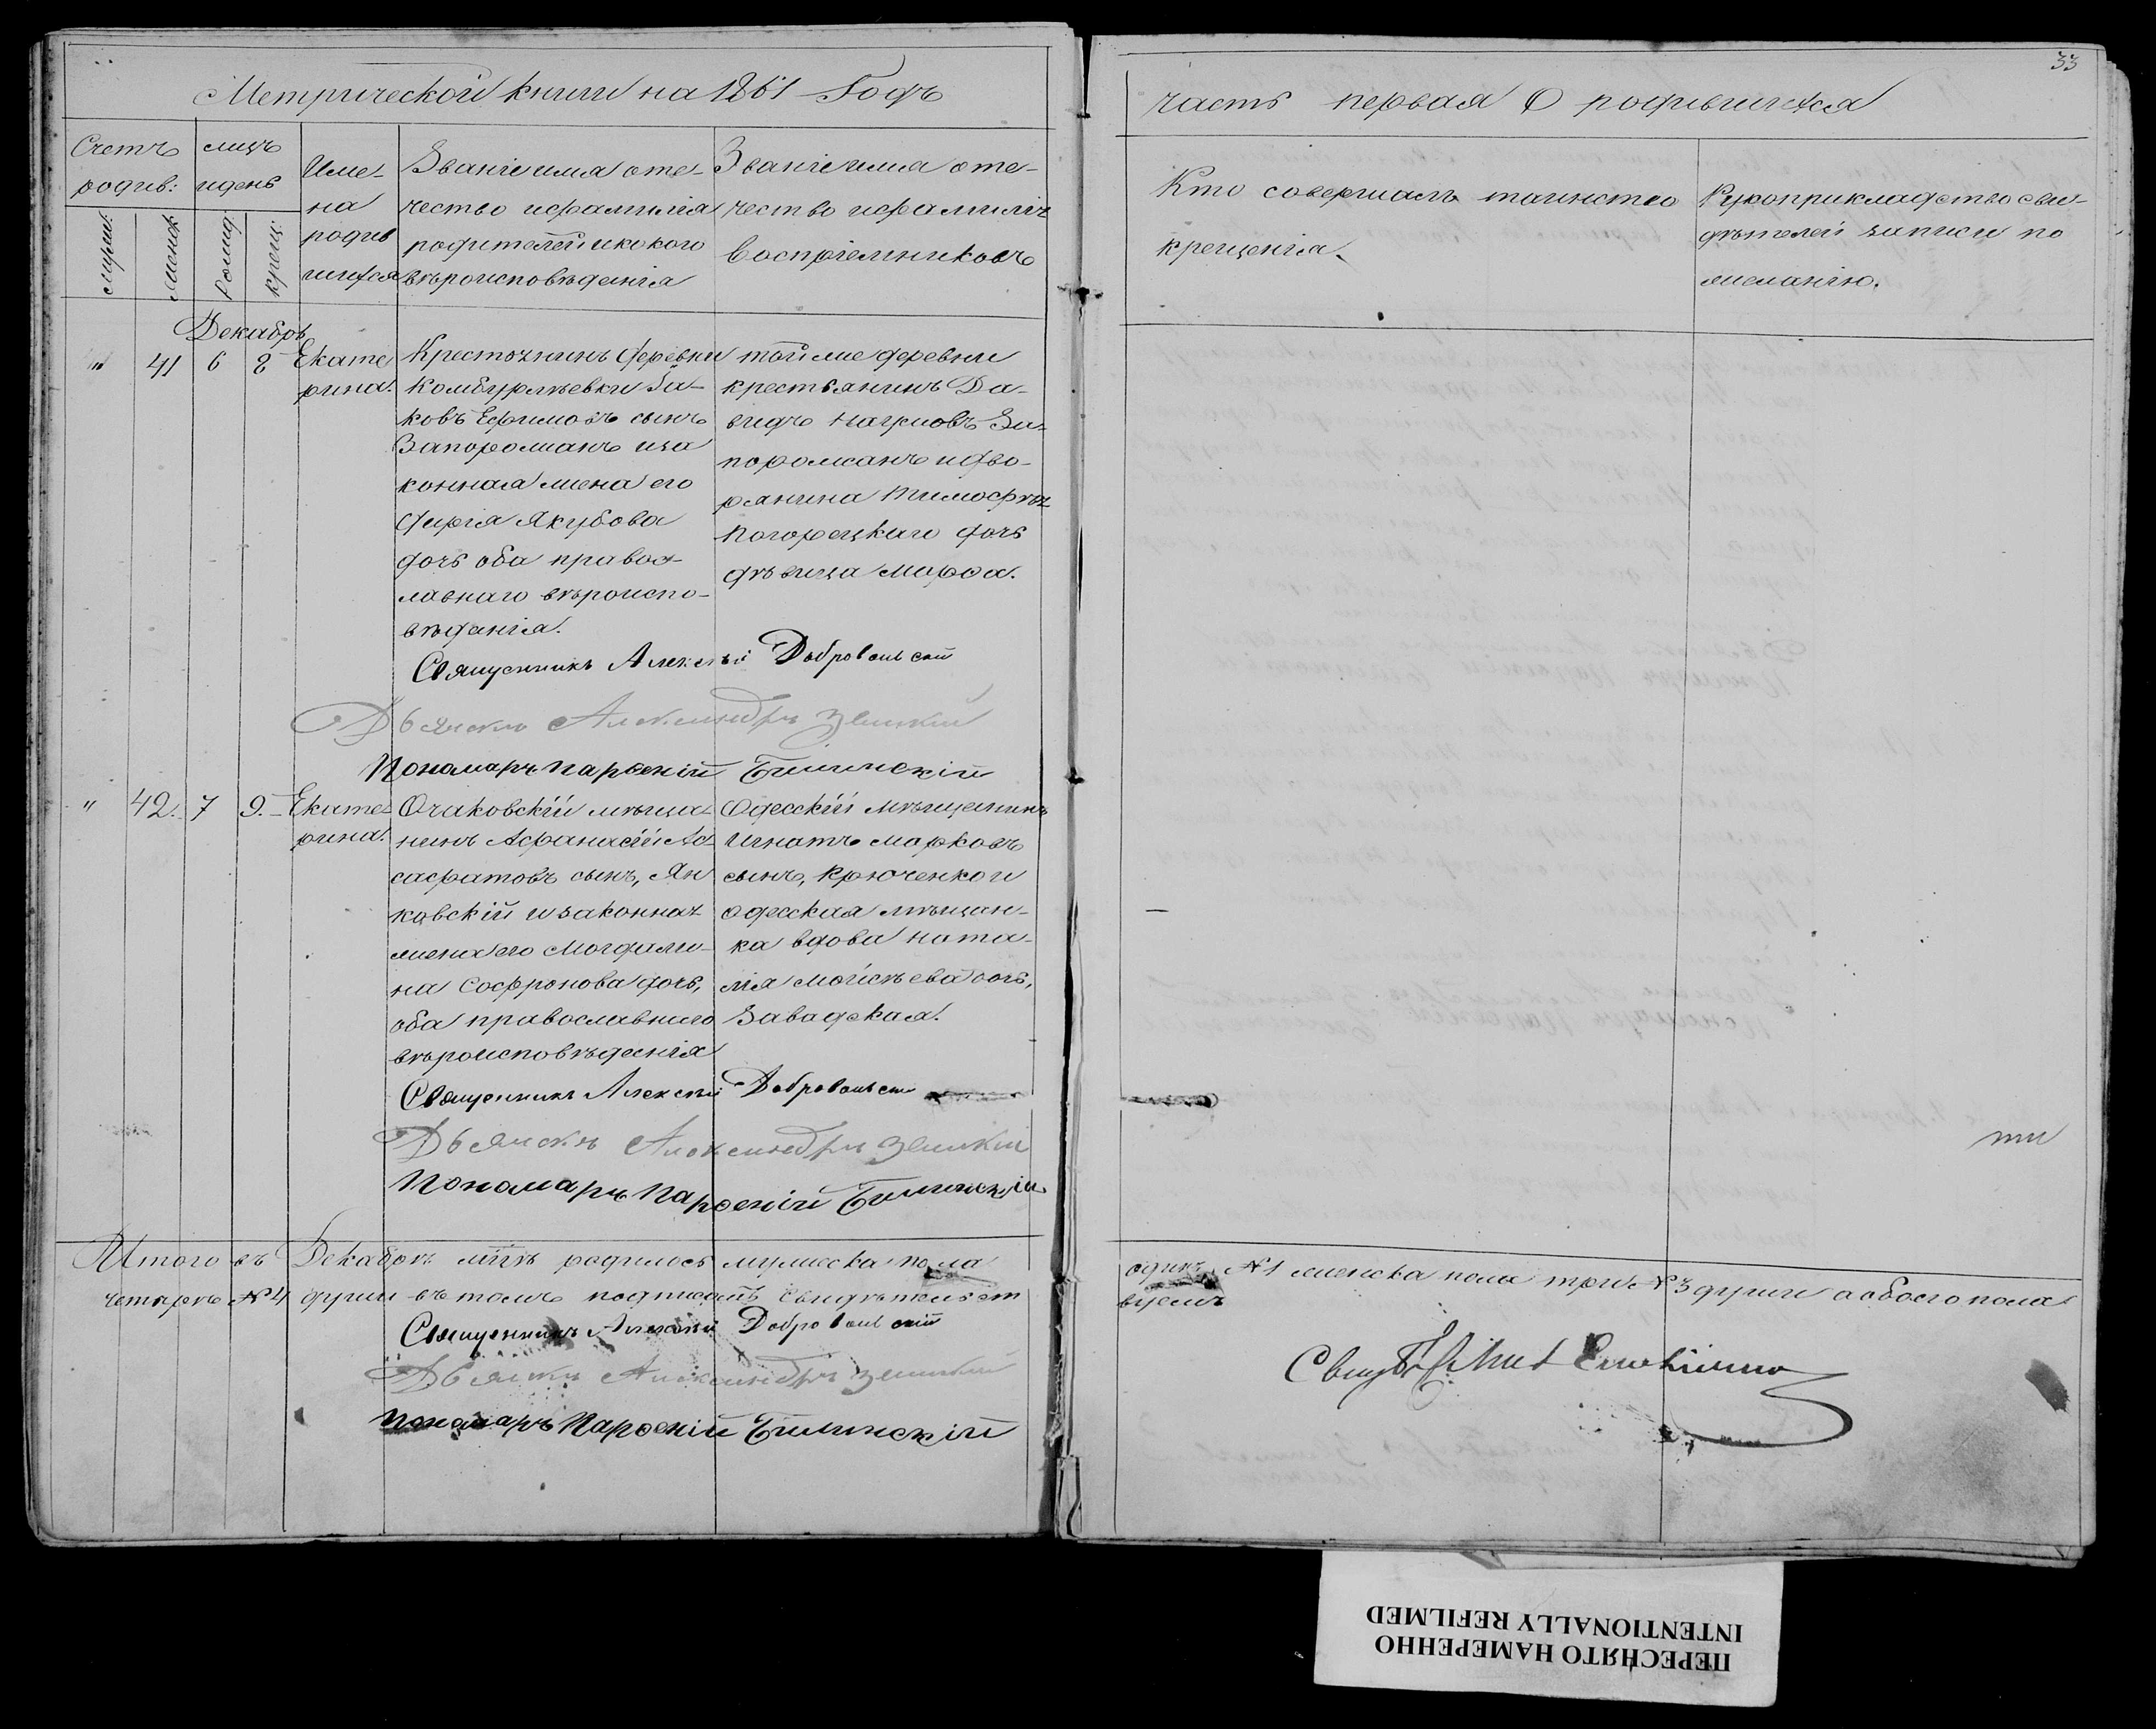 33
Метрической книги на 1861 Годъ
часть первая О родившихся
Счетъ родив:
мужес:
женск:
мцъ идень
рожд:
крещ:
Име-
на
родив
шихся
Званіе имя оте-
чество ифамилія
родителей икокого
вѣроисповѣденія
Званіе имя оте-
чество ифамилія
воспріемниковъ
Кто совершалъ таинство
крещенія.
Рукоприкладство сви-
дѣтелей записи по
желанію.
Декабрь
" 41 6 8 Екате
рина.
Крестьянинъ деревни
Комбурлѣевки Яа-
ковъ Ефимовъ сынъ
Запорожанъ иза
конная жена его
Дарія Якубова
дочь оба правос-
лавнаго вѣроиспо-
вѣданія.
тойже деревни
крестьянинъ Да-
видъ Наумовъ За-
порожанъ идво-
рянина Тимофѣя
Погорецкаго дочь
дѣвица Марфа.
Священникъ Алексѣй Добровольскій
Дьячокъ Александръ Зелинкій
Пономарь Парфеній Билинскій
" 42. 7 9. Екате-
рина.
Очаковскій мѣща-
нинъ Афанасій Ио-
сафатовъ сынъ, Ян
ковскій изаконная
жена его Магдали-
на Софронова дочь,
оба православнаго
вѣроисповѣденія
Одесскій мѣщанинъ
Игнатъ Марковъ
сынъ, Крюченко и
одесская мѣщан-
ка вдова Ната-
лія Мойсѣева дочь,
Завадская.
Священникъ Алексѣй Добровольскій
Дьячокъ Александръ Зелинкій
Пономарь Парфеній Билинскій
Итого въ Декабрѣ мцѣ родилось мужеска пола одинъ №1 женска пола три №3 души а обоего пола
четыре №4 души въ томъ подписомъ свидѣтельст вуемъ
Священникъ Алексѣй Добровольскій
Дьячокъ Александръ Зелинкій
Пономарь Парфеній Билинскій
ПЕРЕСНЯТО НАМЕРЕННО
INTENTIONALLY REFILMED